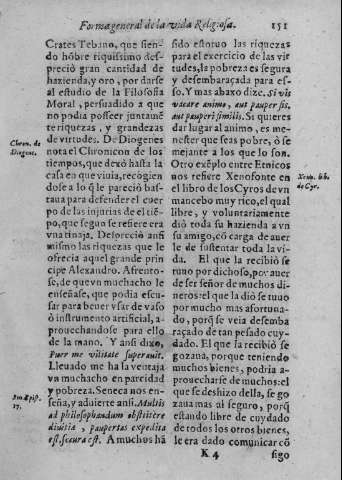 Forma general de la vida Religiosa. 151
Crates Tebano, que sien-
do hõbre riquissimo des-
preciò gran cantidad de
hazienda, y oro, por darse
al estudio de la Filosofia
Moral, persuadido a que
no podia posseer juntamẽ
te riquezas, y grandezas
de virtudes. De Diogenes
nota el Chronicon de los
tiempos, que dexò hasta la
casa en que viuia, recogien
dose a lo q̃ le pareciò bas-
taua para defender el cuer
po de las injurias de el tiẽ-
po, que segun se refiere era
vna tinaja. Despreciò ansi
mismo las riquezas que le
ofrecia aquel grande prin
cipe Alexandro. Afrento-
se, de que vn muchacho le
enseñase, que podia escu-
sar para beuer vsar de vaso
ò instrumento artificial, a-
prouechandose para ello
de la mano. Y ansi dixo,
Puer me vilitate superauit.
Lleuado me ha la ventaja
vn muchacho en parcidad
y pobreza. Seneca nos en-
seña, y aduierte ansi. Multis
ad philosophandum obstitêre
diuitiæ, paupertas expedita
est, secura est. A muchos hã
Chron. de
Diogene.
Sen. Epist.
17.
sido estoruo las riquezas
para el exercicio de las vir
tudes, la pobreza es segura
y desembaraçada para es-
so. Y mas abaxo dize. Si vis
vacare animo, aut pauper sis,
aut pauperi similis. Si quieres
dar lugar al animo, es me-
nester que seas pobre, ò se
mejante a los que lo son.
Otro exẽplo entre Etnicos
nos refiere Xenofonte en
el libro de los Cyros de vn
mancebo muy rico, el qual
libre, y voluntariamente
diò toda su hazienda a vn
su amigo, cõ carga de auer
le de sustentar toda la vi-
da. El que la recibiò se
tuuo por dichoso, por auer
de ser señor de muchos di-
neros: el que la diò se tuuo
por mucho mas afortuna-
do, porq̃ se veia desemba
raçado de tan pesado cuy-
dado. El que la recibiò se
gozaua, porque teniendo
muchos bienes, podria a-
prouecharse de muchos: el
que se deshizo della, se go
zaua mas al seguro, porq̃
estando libre de cuydado
de todos los otros bienes,
le era dado comunicar cõ
Xenop. lib.
de Cyr.
K 4 sigo